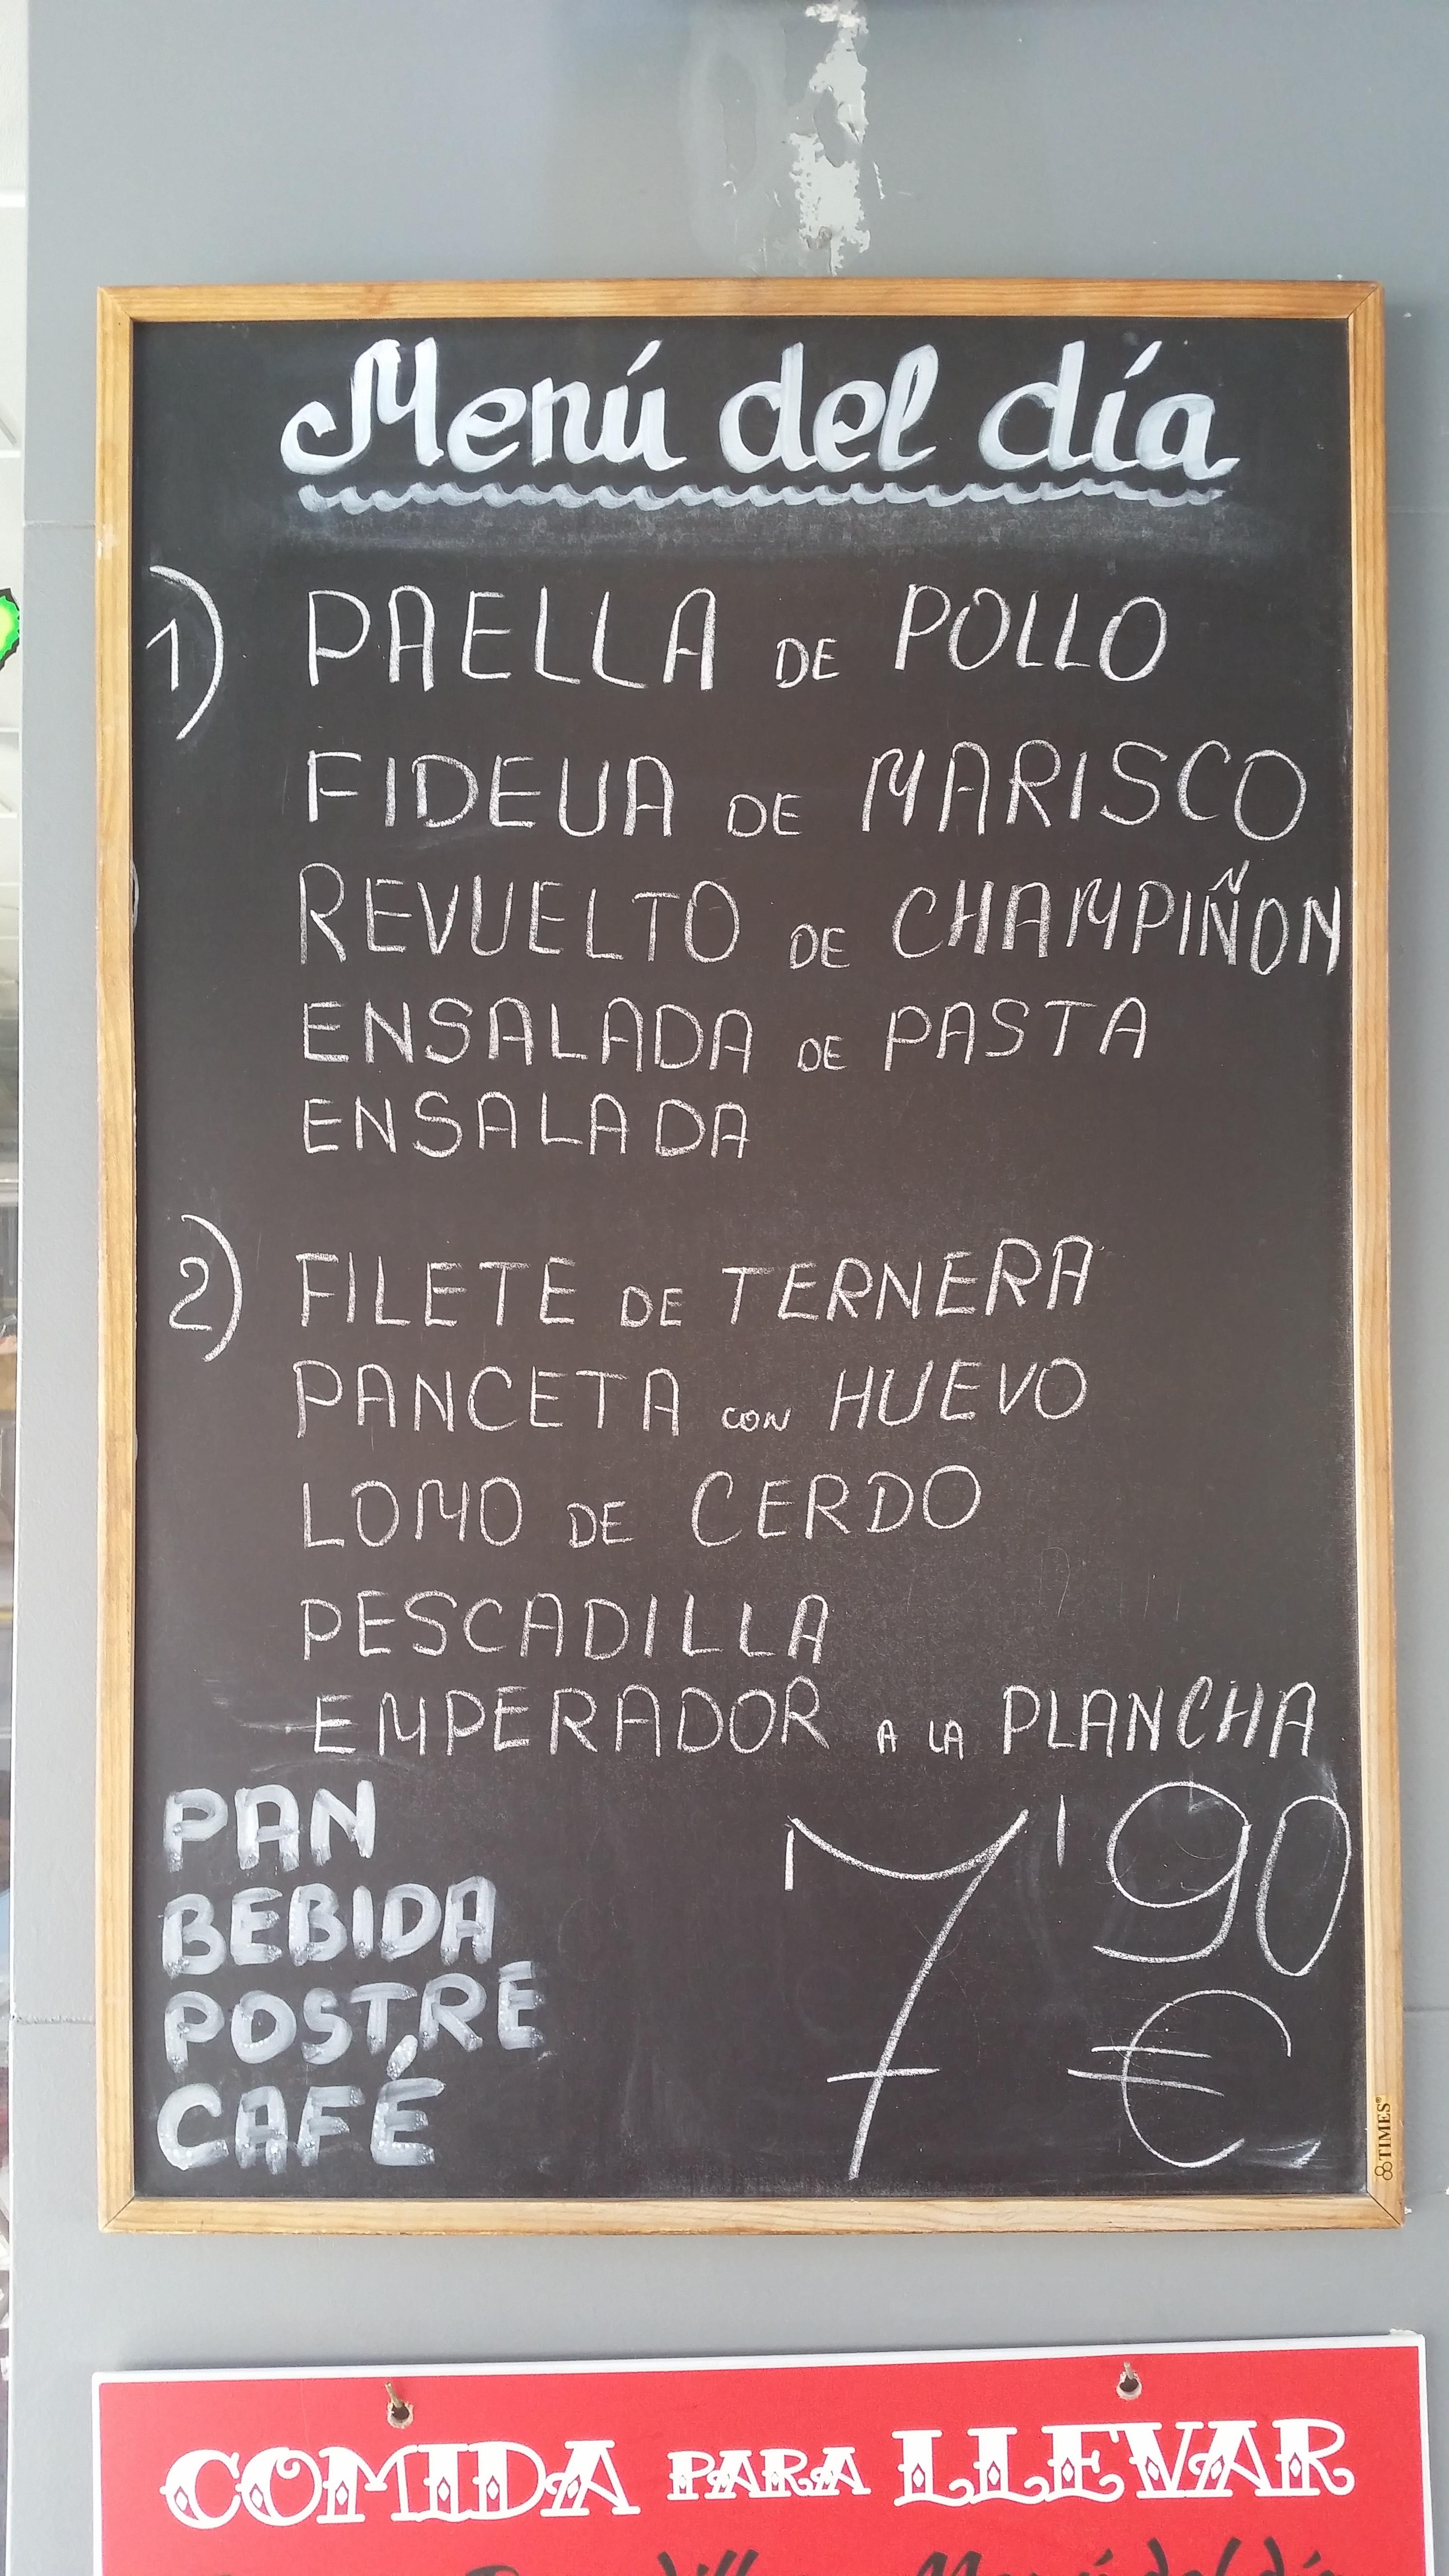 Menú del día
1) PAELLA DE POLLO
FIDEUA DE MARISCO
REVUELTO DE CHAMPIÑON
ENSALADA DE PASTA
ENSALADA
2) FILETE DE TERNERA
PANCETA CON HUEVO
LOMO DE CERDO
PESCADILLA
EMPERADOR A LA PLANCHA
PAN
BEBIDA
POSTRE
CAFÉ
7'90
€
TIMES®
COMIDA PARA LLEVAR
Menú del día